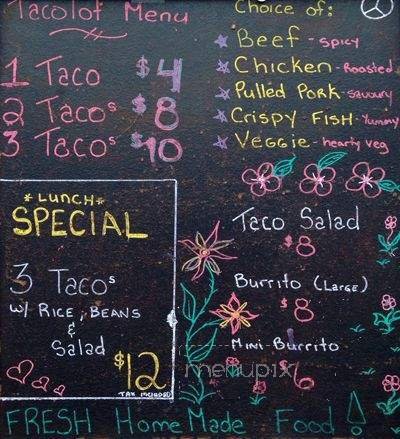 Tacolot Menu
1 Taco $4
2 Tacos $8
3 Tacos $10
Choice of:
Beef - spicy
Chicken - Roasted
Pulled Pork - savoury
Crispy Fish - Yummy
Veggie - hearty veg
*LUNCH*
SPECIAL
3 Tacos
w/ Rice, Beans
&
Salad
$12
TAX INCLUDED
Taco Salad
$8
Burrito (Large)
$8
Mini Burrito
$6
FRESH HomeMade Food!
menupix